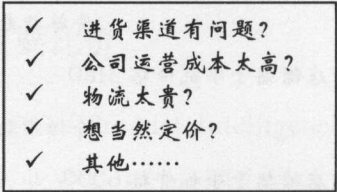 ✓ 进货渠道有问题？
✓ 公司运营成本太高？
✓ 物流太贵？
✓ 想当然定价？
✓ 其他……